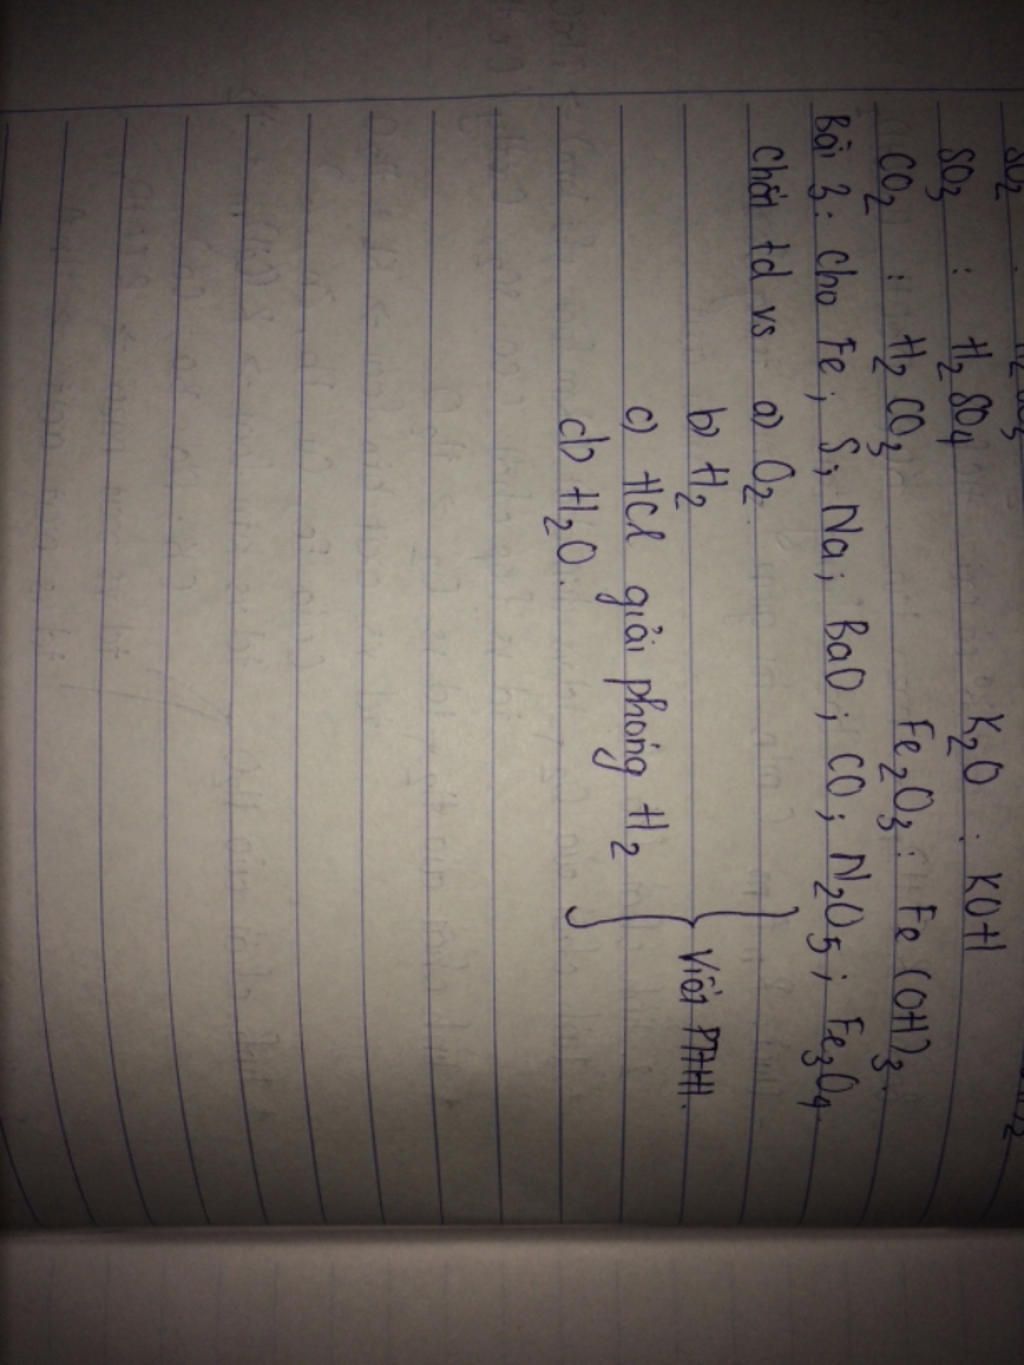 SO₂ :
SO₃ : H₂SO₄ K₂O : KOH
CO₂ : H₂CO₃ Fe₂O₃ : Fe(OH)₃.
Bài 3: Cho Fe; S; Na; BaO; CO; N₂O₅; Fe₃O₄
Chất td vs a) O₂
b) H₂
c) HCl giải phóng H₂
d) H₂O.
Viết PTHH.